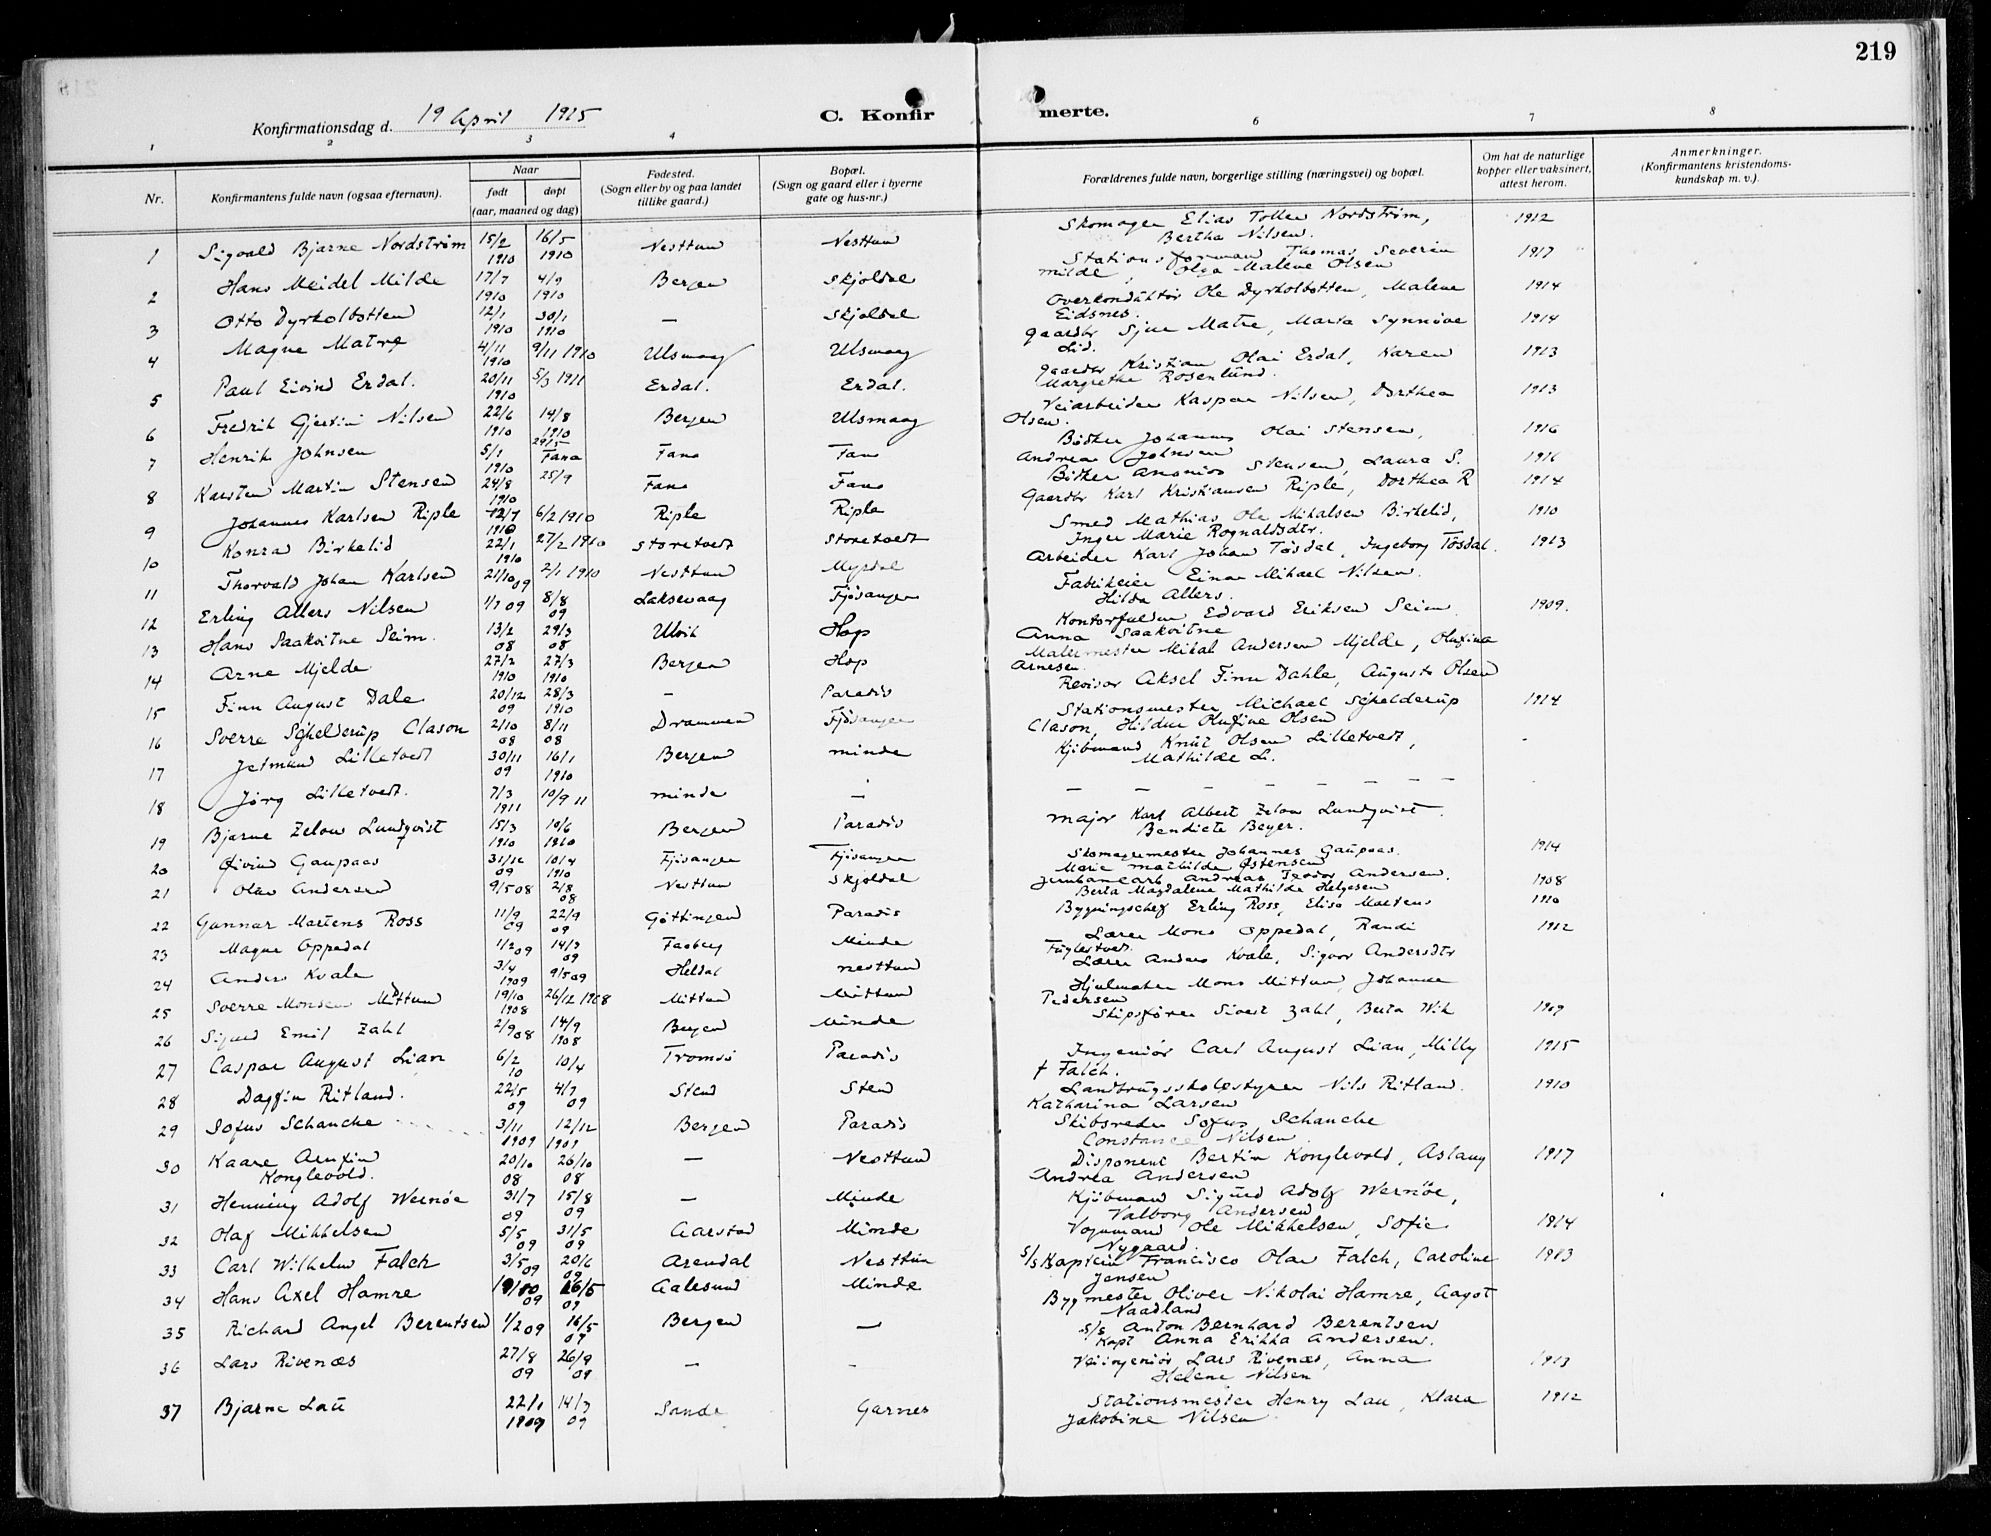 219
Konfirmationsdag d. 19 April 1925
C. Konfirmerte.
1 2 3 4 6 7 8
Nr. Konfirmantens fulde navn (ogsaa efternavn). Naar født døpt (aar, maaned og dag) Fødested. (Sogn eller by og paa landet tillike gaard.) Bopæl. (Sogn og gaard eller i byerne gate og hus-nr.) Forældrenes fulde navn, borgerlige stilling (næringsvei) og bopæl. Om hat de naturlige kopper eller vaksinert, attest herom. Anmerkninger. (Konfirmantens kristendomskundskap m. v.).
1 Sigvald Bjarne Nordstrøm 15/2 1910 16/5 1910 Nesttun Nesttun Skomager Elias Toller Nordstrøm, Bertha Nilsen. 1912
2 Hans Meidel Milde 17/7 1910 4/9 1910 Bergen Skjoldal Stationsformand Thomas Severin Milde, Olga Malene Olsen 1917
3 Otto Dyrkolbotten 12/1 1910 30/1 1910 — Skjoldal Overkonduktør Ole Dyrkolbotten, Malene Eidsnes. 1914
4 Magne Matre 4/11 1910 9/11 1910 Ulsmaag Ulsmaag Gaardbr Sjur Matre, Marta Synnøve Lid. 1914
5 Paul Eivind Erdal. 20/11 1910 5/3 1911 Erdal. Erdal. Gaardbr Kristian Olai Erdal, Karen Margrethe Rosenlund. 1923
6 Fredrik Gjertin Nilsen 22/6 1910 14/8 1910 Bergen Ulsmaag Veiarbeider Kaspar Nilsen, Dorthea Olsen. 1913
7 Henrik Johnsen 5/1 1910 29/5 Fana Fana Fana Bøtker Johannes Olai Stensen, Andrea Johnsen 1916
8 Karsten Martin Stensen 24/8 1910 25/9 Fana Fana Bøtker Ananias Stensen, Laura S. 1916
9 Johannes Karlsen Riple 12/7 1910 6/2 1910 Riple Riple Gaardbr Karl Kristiansen Riple, Dorthea R 1914
10 Konrad Birkelid 22/1 1910 27/2 1910 Storetvedt Storetvedt Smed Mathias Ole Mikalsen Birkelid, Inger Marie Rognaldsdtr. 1910
11 Thorvald Johan Karlsen 21/10 09 2/1 1910 Nesttun Myrdal Arbeider Karl Johan Tøsdal, Ingeborg Tøsdal. 1923
12 Erling Allers Nilsen 1/7 09 8/8 09 Laksevaag Fjøsanger Fabrikeier Einar Mikael Nilsen. Hilda Allers.
13 Hans Saakvitne Seim. 13/2 08 29/3 08 Ulvik Hop Kontorfuldm Edvard Eriksen Seim. Anna Saakvitne 1909.
14 Arne Mjelde 27/2 1910 27/3 1910 Bergen Hop Malermester Mikal Andersen Mjelde, Olufina Arnesen.
15 Finn August Dale 20/12 09 28/3 1910 — Paradis Revisor Aksel Finn Dahle, Augusta Olsen
16 Sverre Sejhelderup Clason 2/10 08 8/11 08 Drammen Fjøsanger Stationsmester Michael Sejhelderup Clason, Hildur Olufine Olsen 1914
17 Jetmund Lilletvedt 30/11 09 16/1 1910 Bergen Minde Kjøbmand Knut Olsen Lilletvedt, Mathilde L.
18 Jørg Lilletvedt. 7/3 1911 10/9 11 Minde — — — — — — — —
19 Bjarne Zelow Lundqvist 15/3 1910 10/6 1910 Bergen Paradis Major Karl Albert Zelow Lundqvist. Bendicte Beyer.
20 Øivind Gaupaas 31/12 09 10/4 1910 Fjøsanger Fjøsanger Skomagermester Johannes Gaupaas. Marie Mathilde Østensen 1914
21 Olav Andersen 9/5 08 2/8 08 Nesttun Skjoldal Jernbanearb Andreas Teodor Andersen. Berta Magdalene Mathilde Helgesen 1908
22 Gunnar Martens Ross 11/9 09 22/9 09 Gøttingen Paradis Bygningschef Erling Ross, Elisa Martens 1920
23 Magne Oppedal 1/2 09 14/3 09 Faaberg Minde Lærer Mons Oppedal, Randi Fuglestved. 1912
24 Anders Kvale 3/4 1909 9/5 09 Heldal Nesttun Lærer Anders Kvale, Sigvor Andersdtr
25 Sverre Monsen Mittun 19/10 1908 26/12 1908 Mittun Mittun Hjulmaker Mons Mittun, Johanna Pedersen
26 Sigurd Emil Zahl 2/9 08 14/9 1908 Bergen Minde Skipsfører Sivert Zahl, Berta Wik 1909
27 Caspar August Lian 6/2 10 10/4 Tromsø Paradis Ingeniør Carl August Lian, Milly † Falch. 1915
28 Dagfin Ritland. 22/5 09 4/7 09 Stend Sten Landbrugsskolestyrer Nils Ritland. Katharina Larsen 1910
29 Sofus Schancke 3/11 1909 12/12 1909 Bergen Paradis Skibsreder Sofus Schancke Constance Nilsen
30 Kaare Arnfin Konglevold. 20/10 08 26/10 08 — Nesttun Disponent Bertin Konglevold, Aslaug Andrea Andersen 1917
31 Henning Adolf Wernøe 31/7 09 15/8 09 — Minde Kjøbmand Sigurd Adolf Wernøe, Valborg Andersen
32 Olaf Mikkelsen 5/5 09 31/5 09 Aarstad Minde Vognmand Ole Mikkelsen, Sofie Nygaard. 1914
33 Carl Wilhelm Falch 3/5 09 20/6 09 Arendal Nesttun S/S Kaptein Francisco Olav Falch, Caroline Jensen 1913
34 Hans Axel Hamre 19/10 09 26/5 09 Aalesund Minde Bygmester Oliver Nikolai Hamre, Aagot Naadland
35 Richard Angel Berentsen 1/2 09 16/5 09 Bergen — S/S Kapt Anton Bernhard Berentsen Anna Erikka Andersen.
36 Lars Rivenæs 27/8 09 26/9 09 — — Veiingeniør Lars Rivenæs, Anna Helene Nilsen 1913
37 Bjarne Lau 22/1 1909 14/3 09 Sande Garnes Stationsmester Henry Lau, Klara Jakobine Nilsen 1912